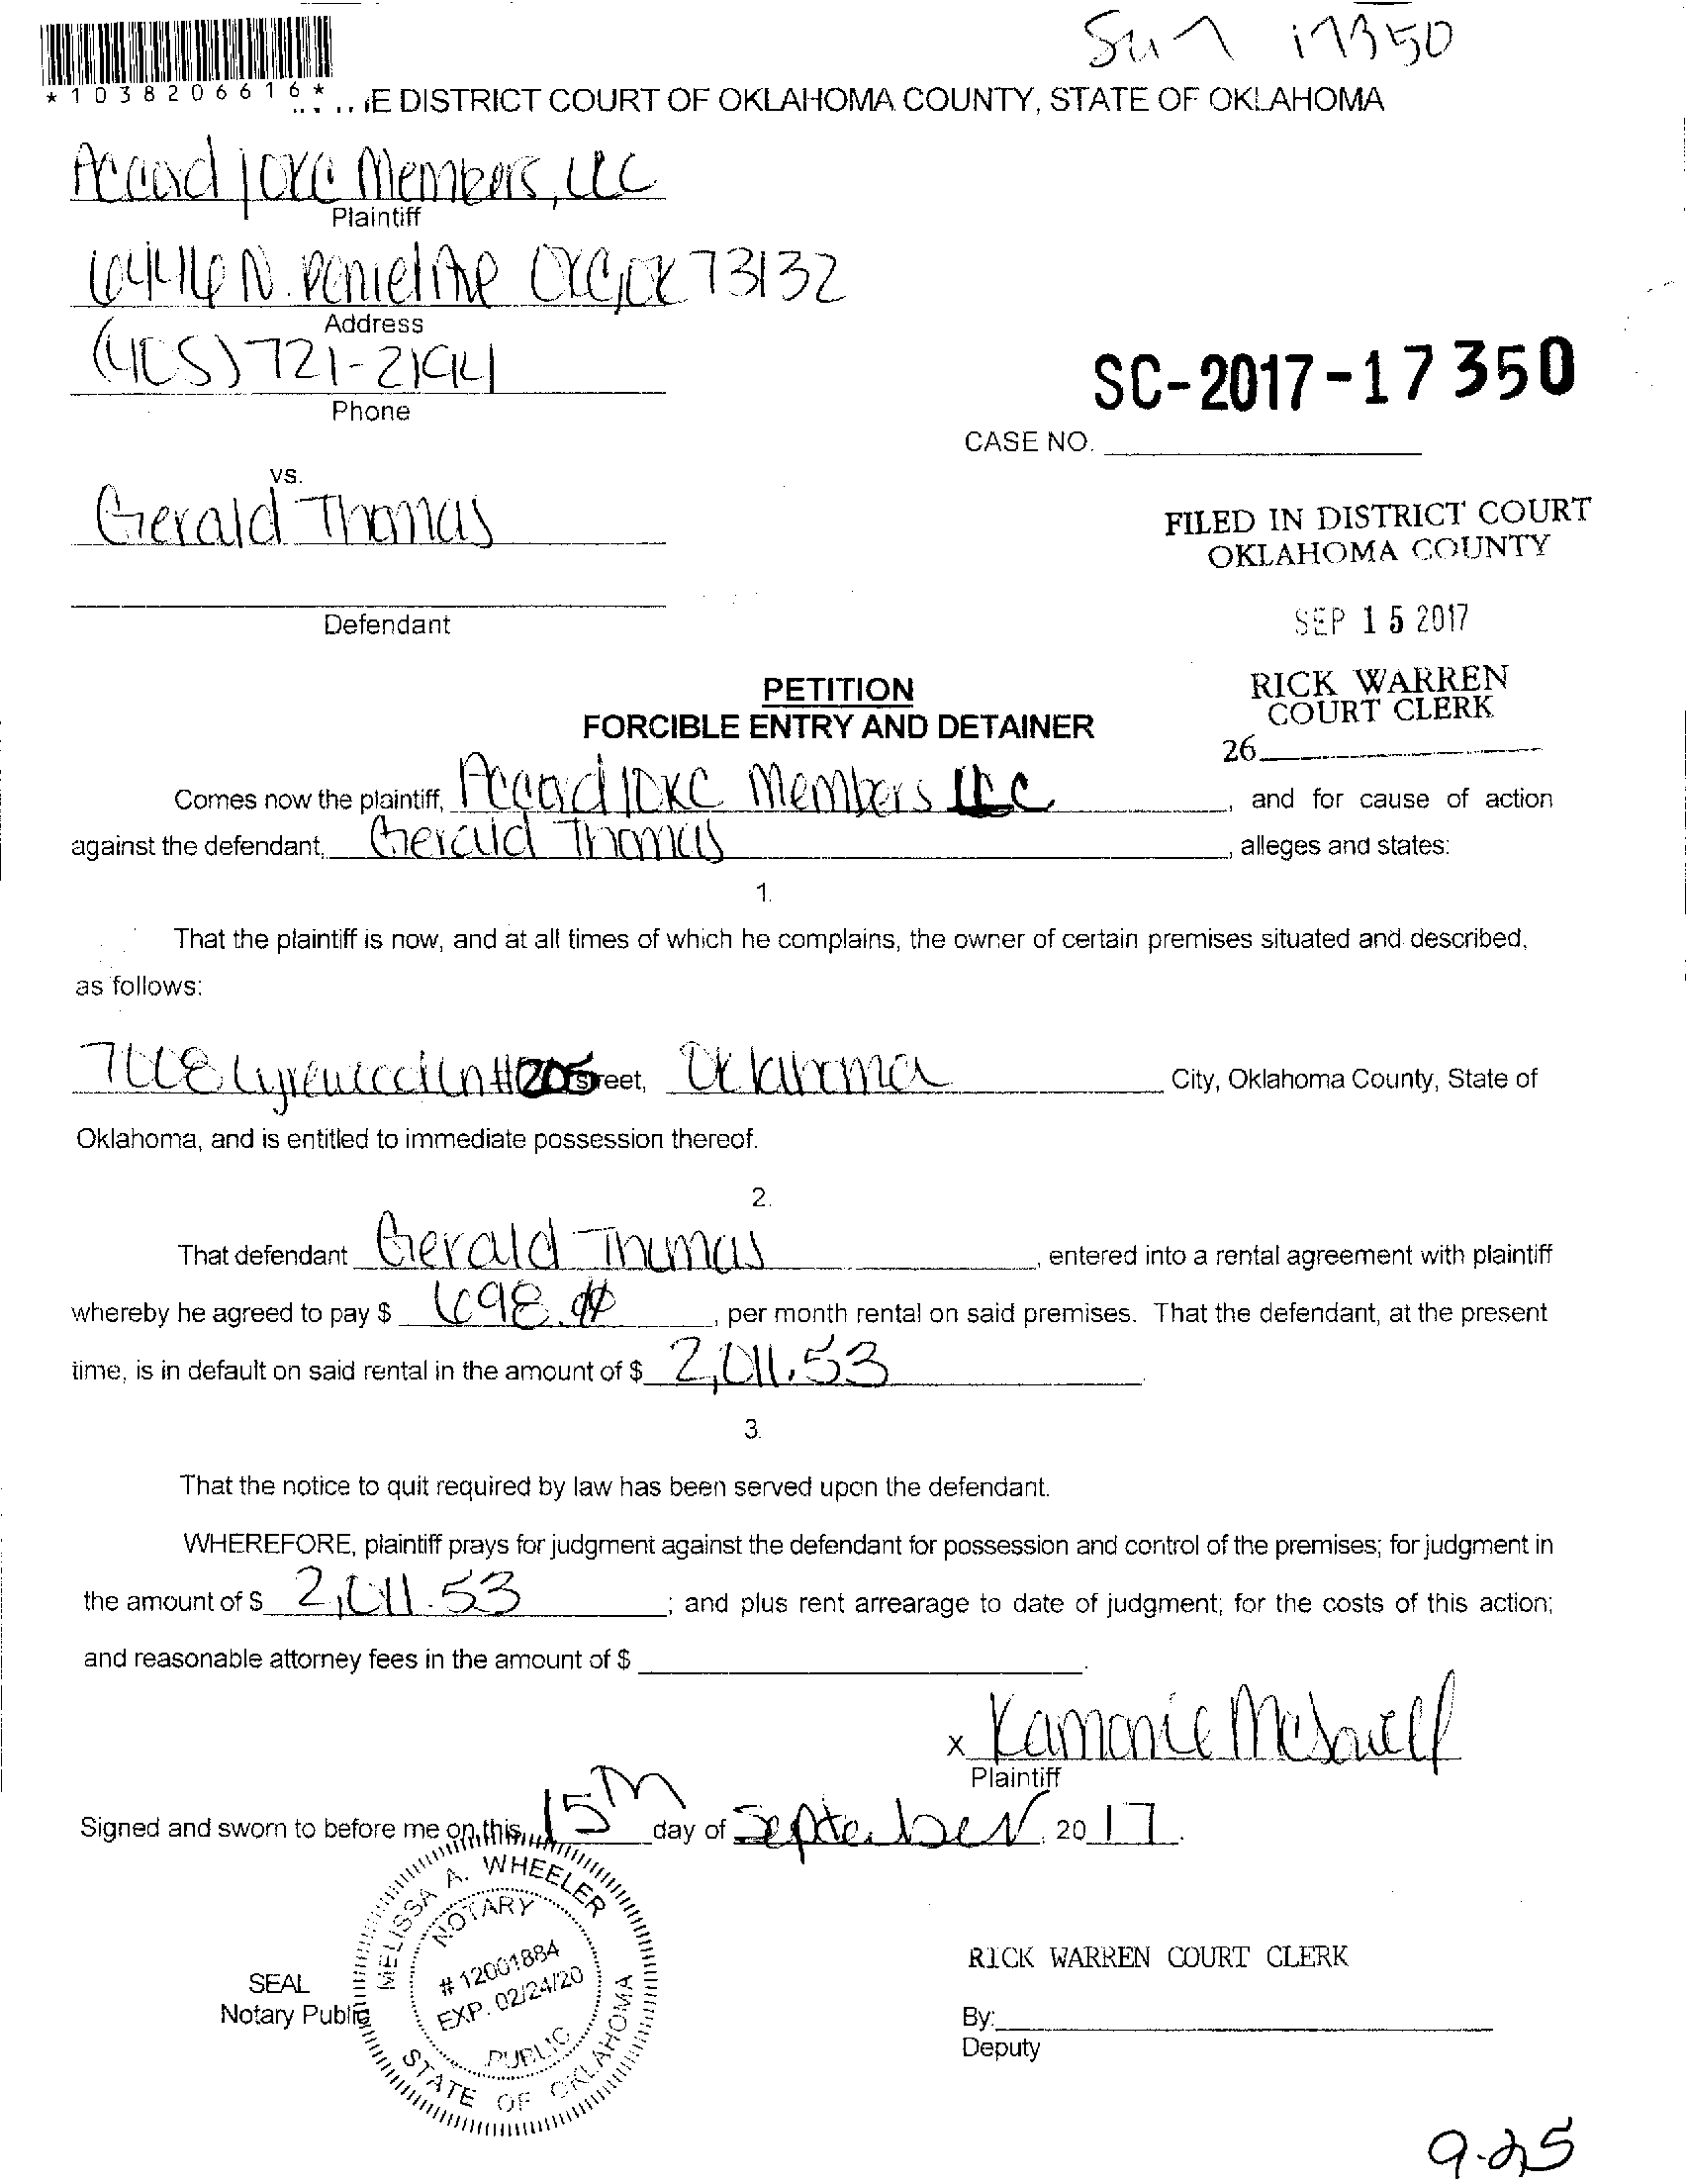 17350
*1038206616*
E DISTRICT COURT OF OKLAHOMA COUNTY, STATE OF OKLAHOMA
Members, LLC
Plaintiff
N. Peniel Ave OKC, OK 73132
Address
(405) 721-2194
Phone
SC-2017-17350
CASE NO.
vs.
Gerald Thomas
FILED IN DISTRICT COURT
OKLAHOMA COUNTY
Defendant
SEP 15 2017
PETITION
RICK WARREN
COURT CLERK
FORCIBLE ENTRY AND DETAINER
26
Comes now the plaintiff, Members LLC, and for cause of action
against the defendant, Gerald Thomas, alleges and states:
1.
That the plaintiff is now, and at all times of which he complains, the owner of certain premises situated and described,
as follows:
#205 Street, Oklahoma City, Oklahoma County, State of
Oklahoma, and is entitled to immediate possession thereof.
2.
That defendant Gerald Thomas, entered into a rental agreement with plaintiff
whereby he agreed to pay $ 698.00, per month rental on said premises. That the defendant, at the present
time, is in default on said rental in the amount of $ 2,011.53.
3.
That the notice to quit required by law has been served upon the defendant.
WHEREFORE, plaintiff prays for judgment against the defendant for possession and control of the premises; for judgment in
the amount of $ 2,011.53; and plus rent arrearage to date of judgment; for the costs of this action;
and reasonable attorney fees in the amount of $
x Kamonie
Plaintiff
Signed and sworn to before me on this 15th day of September, 2017.
MELISSA A. WHEELER
NOTARY
# 12001884
EXP. 02/24/20
PUBLIC
STATE OF OKLAHOMA
SEAL
Notary Public
RICK WARREN COURT CLERK
By:
Deputy
9-25